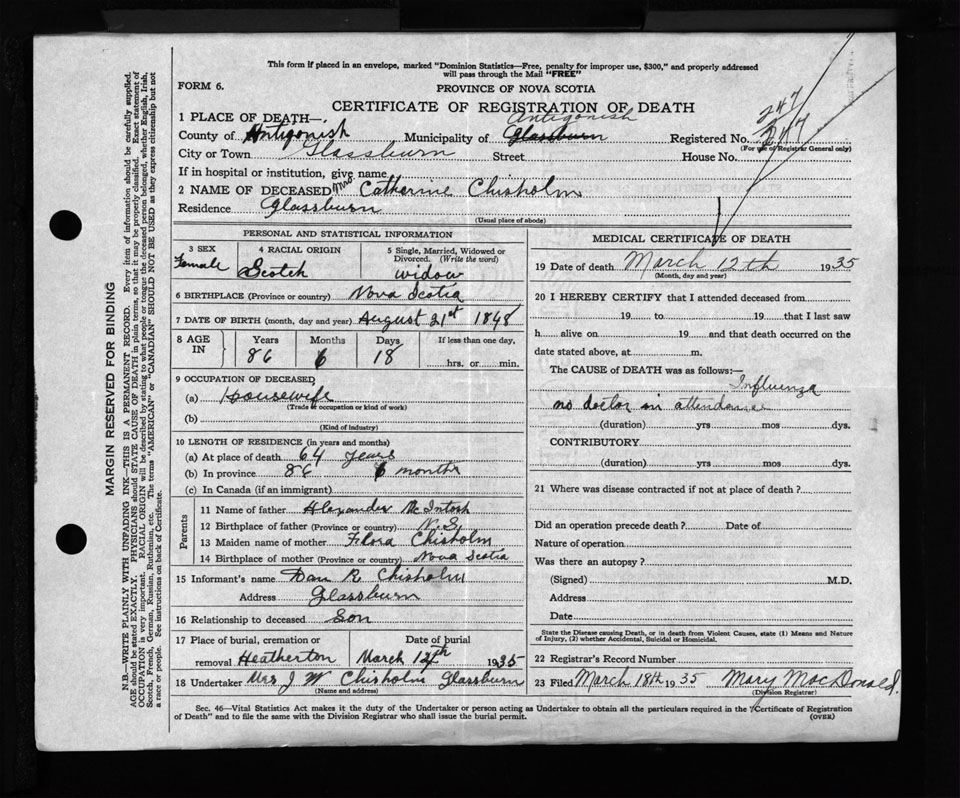 This form if placed in an envelope, marked "Dominion Statistics—Free, penalty for improper use, $300," and properly addressed
will pass through the Mail "FREE"
FORM 6.
PROVINCE OF NOVA SCOTIA
CERTIFICATE OF REGISTRATION OF DEATH
1 PLACE OF DEATH—
Antigonish
247
County of Antigonish Municipality of Glassburn Registered No. 247
(For use of Registrar General only)
City or Town Glassburn Street House No.
If in hospital or institution, give name
2 NAME OF DECEASED Mrs Catherine Chisholm
Residence Glassburn
(Usual place of abode)
PERSONAL AND STATISTICAL INFORMATION
3 SEX
Female
4 RACIAL ORIGIN
Scotch
5 Single, Married, Widowed or
Divorced. (Write the word)
widow
6 BIRTHPLACE (Province or country) Nova Scotia
7 DATE OF BIRTH (month, day and year) August 21st 1848
8 AGE
IN
Years
86
Months
6
Days
18
If less than one day,
hrs. or min.
9 OCCUPATION OF DECEASED
(a) Housewife
(Trade or occupation or kind of work)
(b)
(Kind of industry)
10 LENGTH OF RESIDENCE (in years and months)
(a) At place of death 64 years
(b) In province 86 6 months
(c) In Canada (if an immigrant)
Parents
11 Name of father Alexander McIntosh
12 Birthplace of father (Province or country) N.S.
13 Maiden name of mother Flora Chisholm
14 Birthplace of mother (Province or country) Nova Scotia
15 Informant's name Dan R Chisholm
Address Glassburn
16 Relationship to deceased Son
17 Place of burial, cremation or
removal Heatherton
Date of burial
March th 1935
18 Undertaker Mrs J W Chisholm Glassburn
(Name and address)
MEDICAL CERTIFICATE OF DEATH
19 Date of death March 12th 1935
(Month, day and year)
20 I HEREBY CERTIFY that I attended deceased from
19 to 19 that I last saw
h alive on 19 and that death occurred on the
date stated above, at m.
The CAUSE of DEATH was as follows:—
Influenza
no doctor in attendance
(duration) yrs mos dys.
CONTRIBUTORY
(duration) yrs mos dys.
21 Where was disease contracted if not at place of death?
Did an operation precede death? Date of
Nature of operation
Was there an autopsy?
(Signed) M.D.
Address
Date
State the Disease causing Death, or in death from Violent Causes, state (1) Means and Nature
of Injury, (2) whether Accidental, Suicidal or Homicidal.
22 Registrar's Record Number
23 Filed March 18th 1935 Mary MacDonald.
(Division Registrar)
Sec. 46—Vital Statistics Act makes it the duty of the Undertaker or person acting as Undertaker to obtain all the particulars required in the "Certificate of Registration
of Death" and to file the same with the Division Registrar who shall issue the burial permit.
(OVER)
MARGIN RESERVED FOR BINDING
N.B.—WRITE PLAINLY WITH UNFADING INK—THIS IS A PERMANENT RECORD. Every item of information should be carefully supplied.
AGE should be stated EXACTLY. PHYSICIANS should STATE CAUSE OF DEATH in plain terms, so that it may be properly classified. Exact statement of
OCCUPATION is very important. RACIAL ORIGIN will be described by stating to what people or tongue the deceased person belonged, whether English, Irish,
Scotch, French, German, Russian, Ruthenian, etc. The terms "AMERICAN" or "CANADIAN" SHOULD NOT BE USED as they express citizenship but not
a race or people. See instructions on back of Certificate.